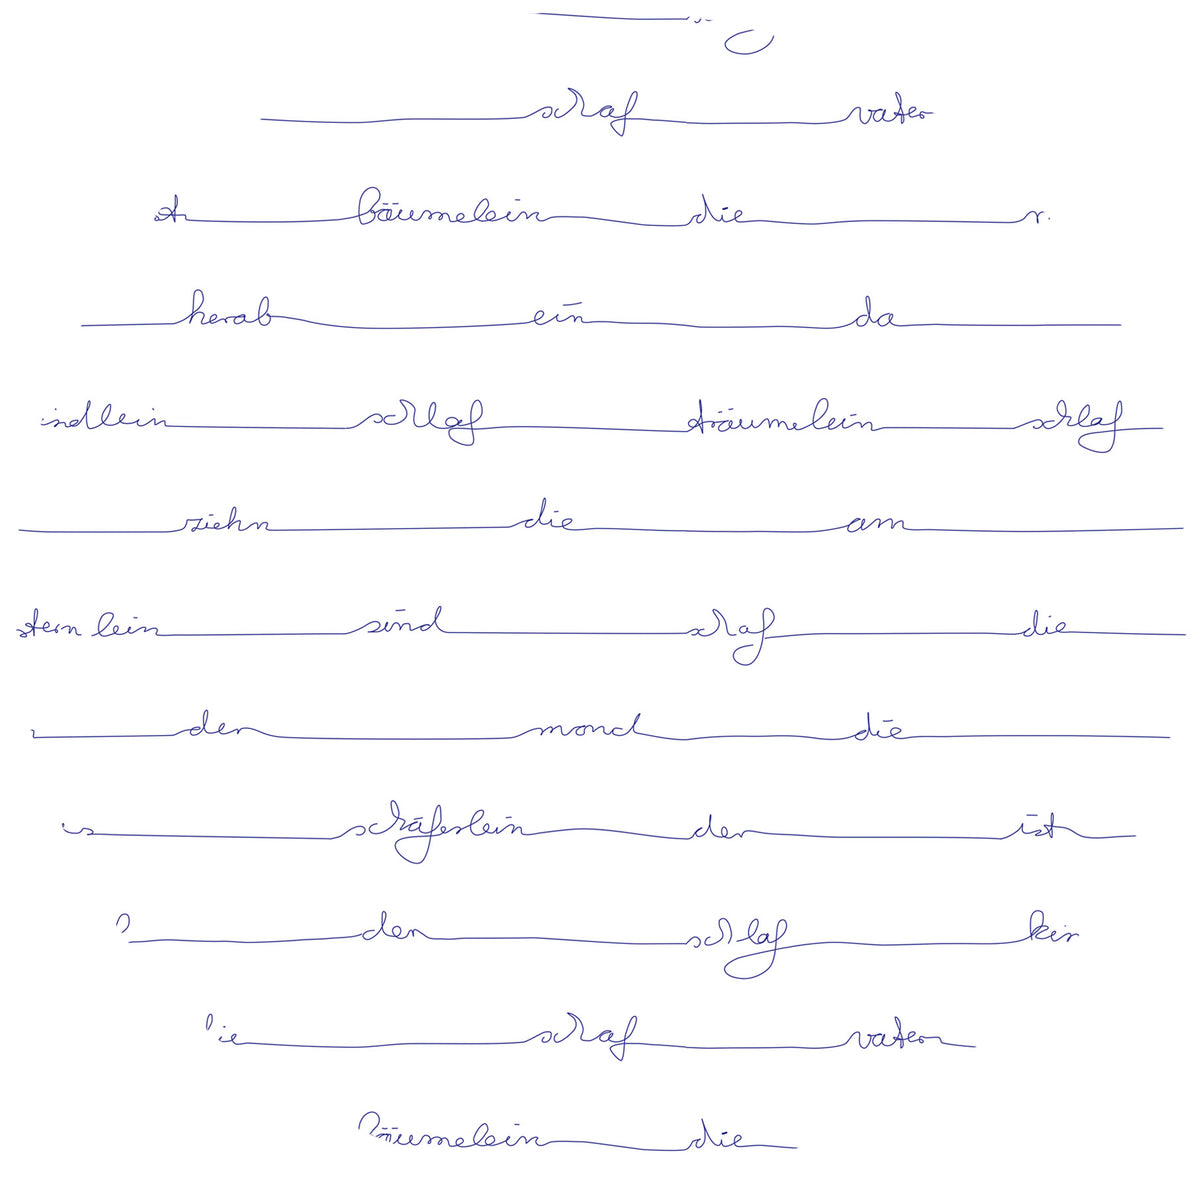 schaf vater
bäumelein die
herab ein da
schlaf träumelein schlaf
ziehn die am
sternlein sind schaf die
der mond die
schäferlein der ist
den schlaf
schaf vater
bäumelein die